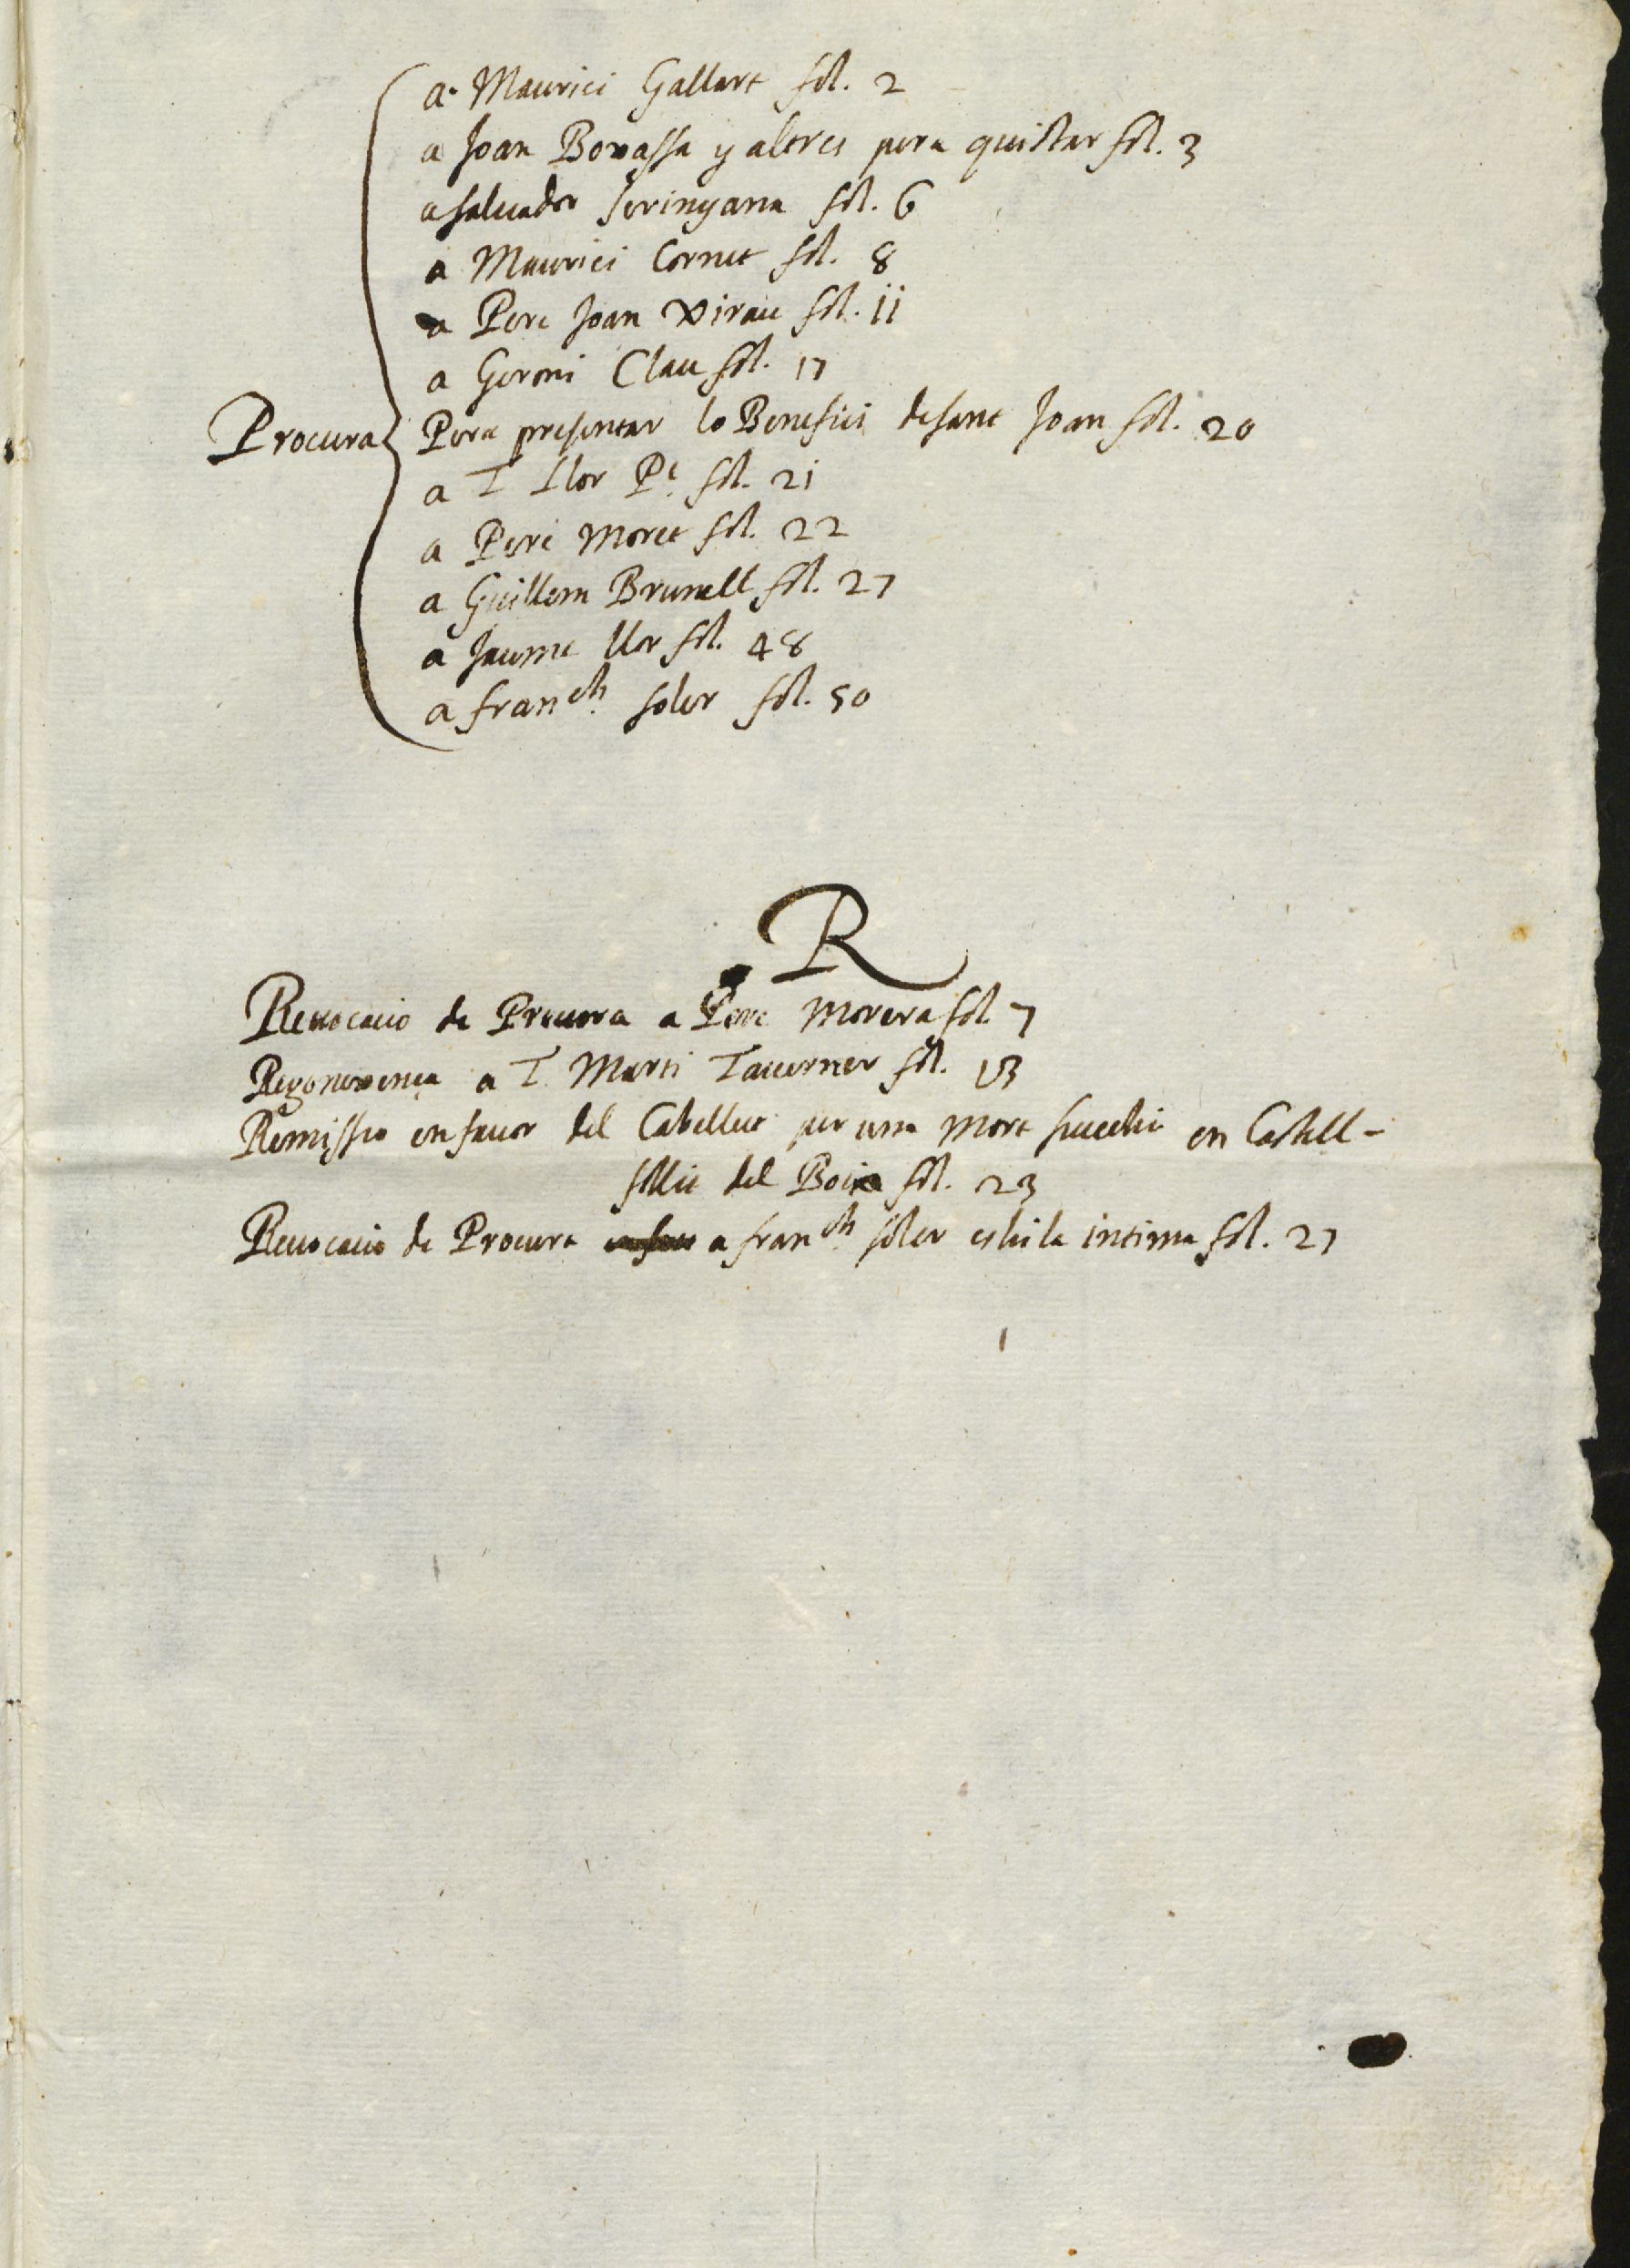 a Maurici Gallart fol. 2
a Joan Boxassa y altres pera quistar fol. 3
a saluador seringana fol. 6
a Maurici Cornet fol. 8
a Pere Joan Xirau fol. 11
a Geroni Clau fol. 17
Procura Pera presentar lo Benefici de sant Joan fol. 20
a T Llor Pe. fol. 21
a Pere Moret fol. 22
a Guillem Brunell fol. 27
a Jaume llor fol. 48
a franch. soler fol. 50
R
Reuocacio de Procura a Pere Morera fol. 7
Regonexença a T. Marti Tauerner fol. 13
Remissio en fauor del Cabellut per una mort succehi en Castell-
follit del Boix fol. 23
Reuocacio de Procura a franch soler es hi la intima fol. 27